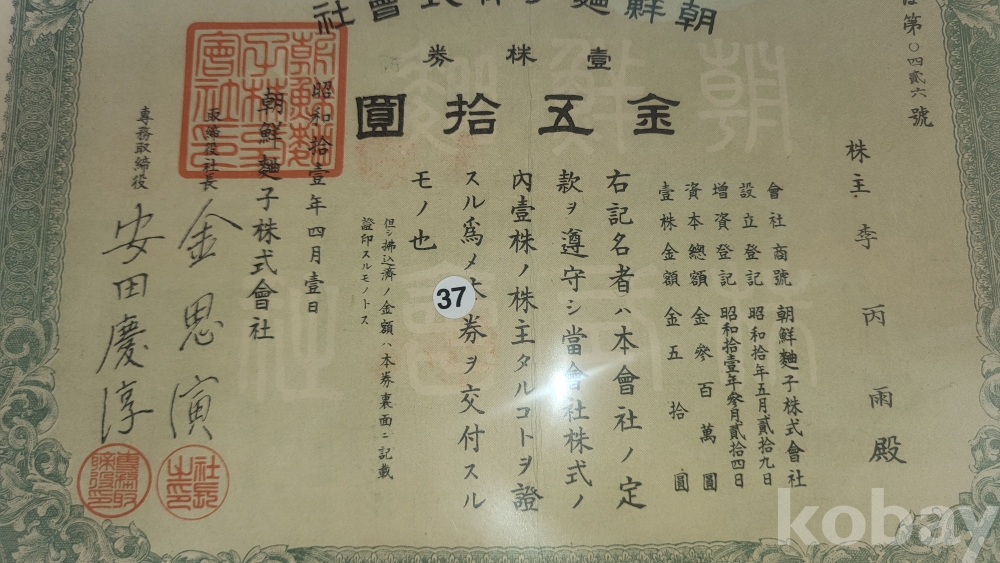 朝鮮麵子株式會社
第〇四貳六號
壹株券
金五拾圓
株主 李丙雨殿
會社商號 朝鮮麵子株式會社
設立登記 昭和拾年五月貳拾九日
增資登記 昭和拾壹年參月貳拾四日
資本總額 金參百萬圓
壹株金額 金五拾圓
右記名者ハ本會社ノ定
款ヲ遵守シ當會社株式ノ
內壹株ノ株主タルコトヲ證
スル爲メ本券ヲ交付スル
モノ也
但シ拂込濟ノ金額ハ本券裏面ニ記載
證印スルモノトス
昭和拾壹年四月壹日
朝鮮麵子株式會社
取締役社長 金思演
專務取締役 安田慶淳
朝鮮麵
子株式
會社印
社長
之印
專務取
締役印
37
kobay